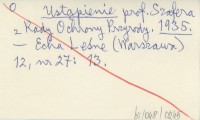 O Ustąpienie prof. Szafera
z Rady Ochrony Przyrody. 1935.
— Echa Leśne (Warszawa)
12, nr 27: 13.